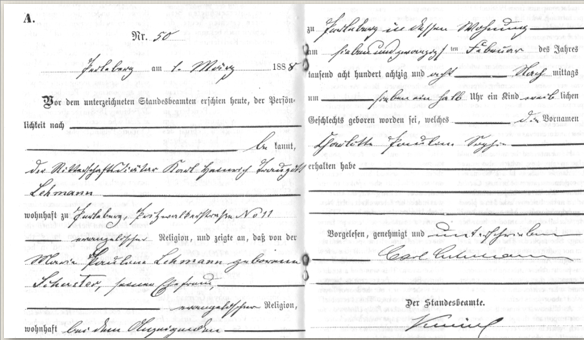 A.
Nr. 50
Perleberg am 1. März 1888
Vor dem unterzeichneten Standesbeamten erschien heute, der Persön-
lichkeit nach
be kannt,
der Karl Heinrich Traugott
Lehmann
wohnhaft zu Perleberg, No 11
evangelischer Religion, und zeigte an, daß von der
Marie Pauline Lehmann geborenen
Schuster, seiner Ehefrau,
evangelischer Religion,
wohnhaft bei dem Anzeigenden
zu Perleberg in dessen Wohnung
am sieben und zwanzigsten Februar des Jahres
tausend acht hundert achtzig und acht Nach mittags
um sieben ein halb Uhr ein Kind weib lichen
Geschlechts geboren worden sei, welches die Vornamen
Charlotte Pauline Sophie
erhalten habe
Vorgelesen, genehmigt und unterschrieben
Carl Lehmann
Der Standesbeamte.